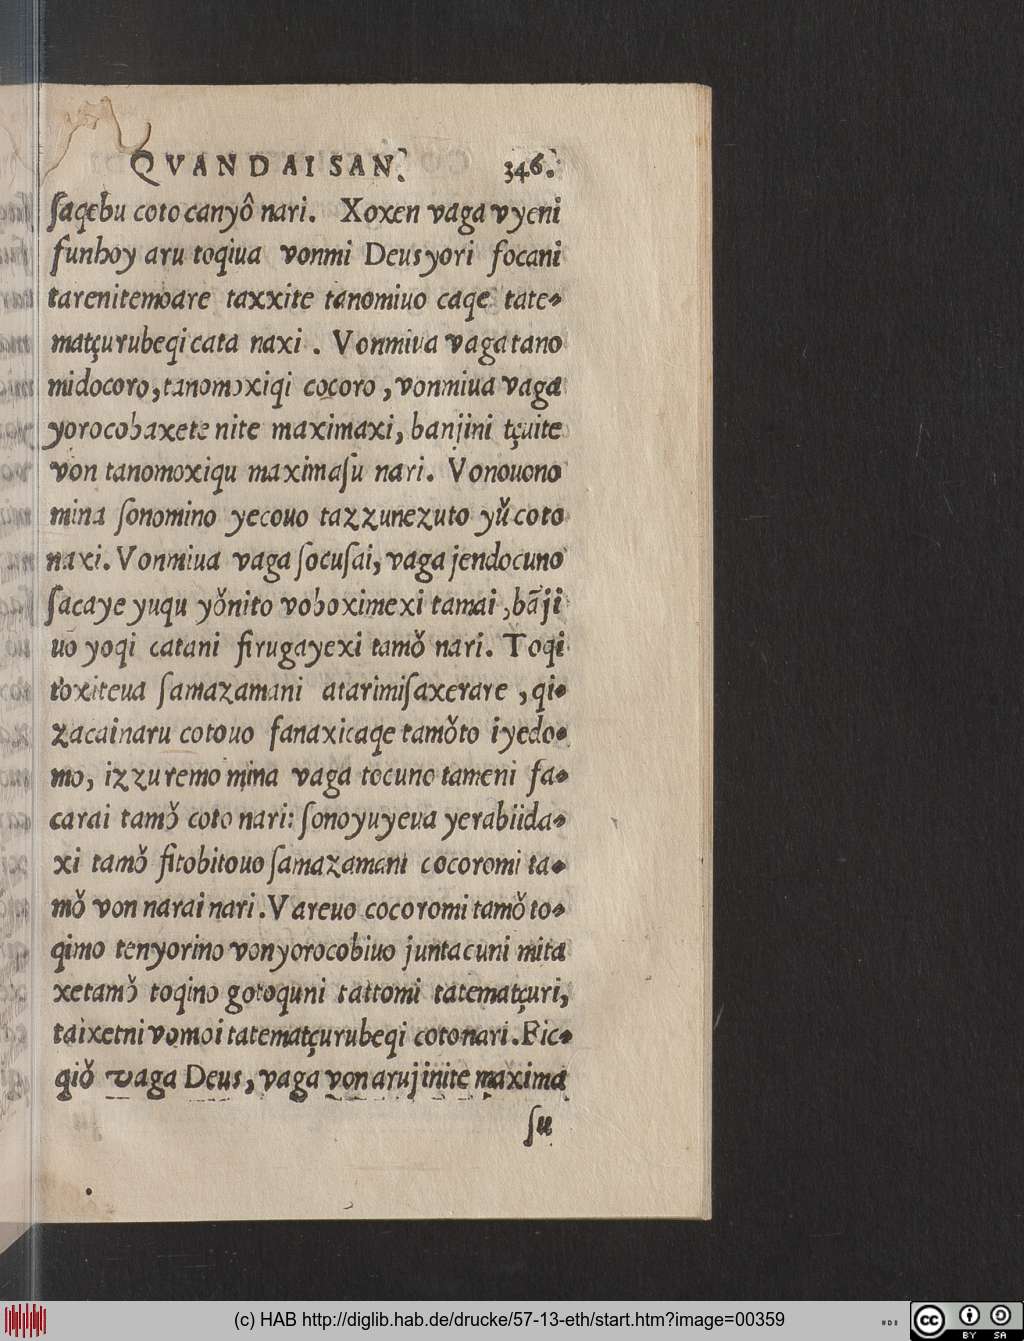 QVANDAI SAN. 346.
ſaqebu coto canyô nari. Xoxen vaga vyeni
funboy aru toqiua vonmi Deus yori focani
tarenitemoare taxxite tanomiuo caqe tate-
matçurubeqi cata naxi. Vonmiua vaga tano
midocoro, tanomoxiqi cocoro, vonmiua vaga
yorocobaxete nite maximaxi, banjini tçuite
von tanomoxiqu maximaſu nari. Vonouono
mina ſonomino yecouo tazzunezuto yŭ coto
naxi. Vonmiua vaga ſocuſai, vaga jendocuno
ſacaye yuqu yŏnito voboximexi tamai, bãji
uo yoqi catani firugayexi tamŏ nari. Toqi
toxiteua ſamazamani atarimiſaxerare, qi-
zacainaru cotouo fanaxicaqe tamŏto iyedo-
mo, izzuremo mina vaga tocuno tameni fa-
carai tamŏ coto nari: ſonoyuyeua yerabiida-
xi tamŏ fitobitouo ſamazamani cocoromi ta-
mŏ von narai nari. Vareuo cocoromi tamŏ to-
qimo tenyorino vonyorocobiuo juntacuni mita
xetamŏ toqino gotoquni taitomi tatematçuri,
taixetni vomoi tatematçurubeqi coto nari. Fic-
qiŏ vaga Deus, vaga von arujinite maxima
ſu
(c) HAB http://diglib.hab.de/drucke/57-13-eth/start.htm?image=00359
cc BY SA